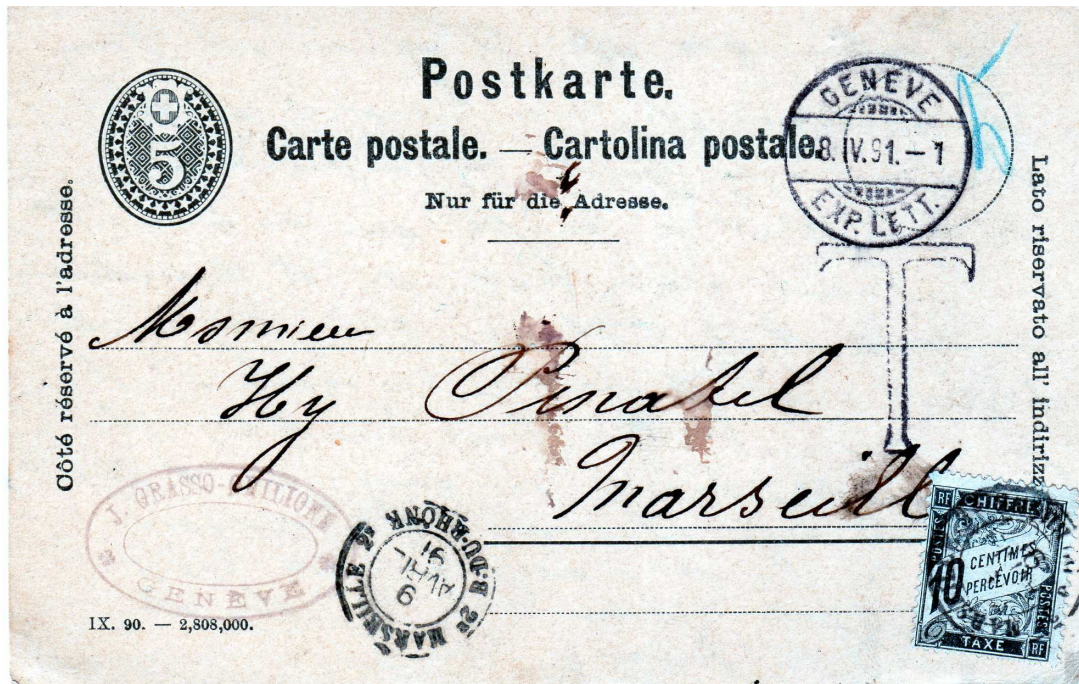 5
Postkarte.
Carte postale. — Cartolina postale.
Nur für die Adresse.
GENEVE
8. IV. 91. – 1
EXP. LETT.
T
Côté réservé à l'adresse.
Lato riservato all' indirizz
Monsieur
Hy Pinatel
Marseill
J. GRASSO
GENEVE
MARSEILLE
B. DU RHÔNE
9
AVRIL
91
RF CHIFFRE
10 CENTIMES
À PERCEVOIR
POSTES
TAXE RF
IX. 90. — 2,808,000.